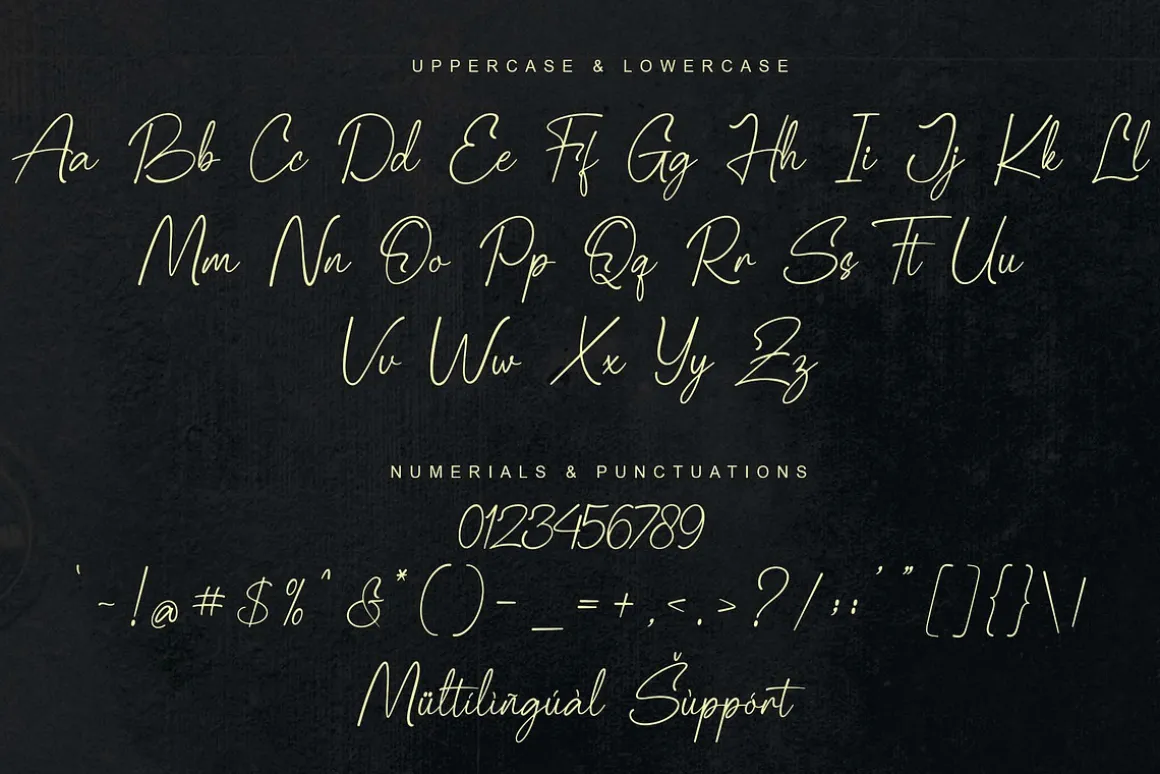 UPPERCASE & LOWERCASE
Aa Bb Cc Dd Ee Ff Gg Hh Ii Jj Kk Ll
Mm Nn Oo Pp Qq Rr Ss Tt Uu
Vv Ww Xx Yy Zz
NUMERIALS & PUNCTUATIONS
0123456789
` ~ ! @ # $ % ^ & * ( ) - _ = + , < . > ? / ; : ' " [ ] { } \ |
Mültílìñgúàl Šùppórt